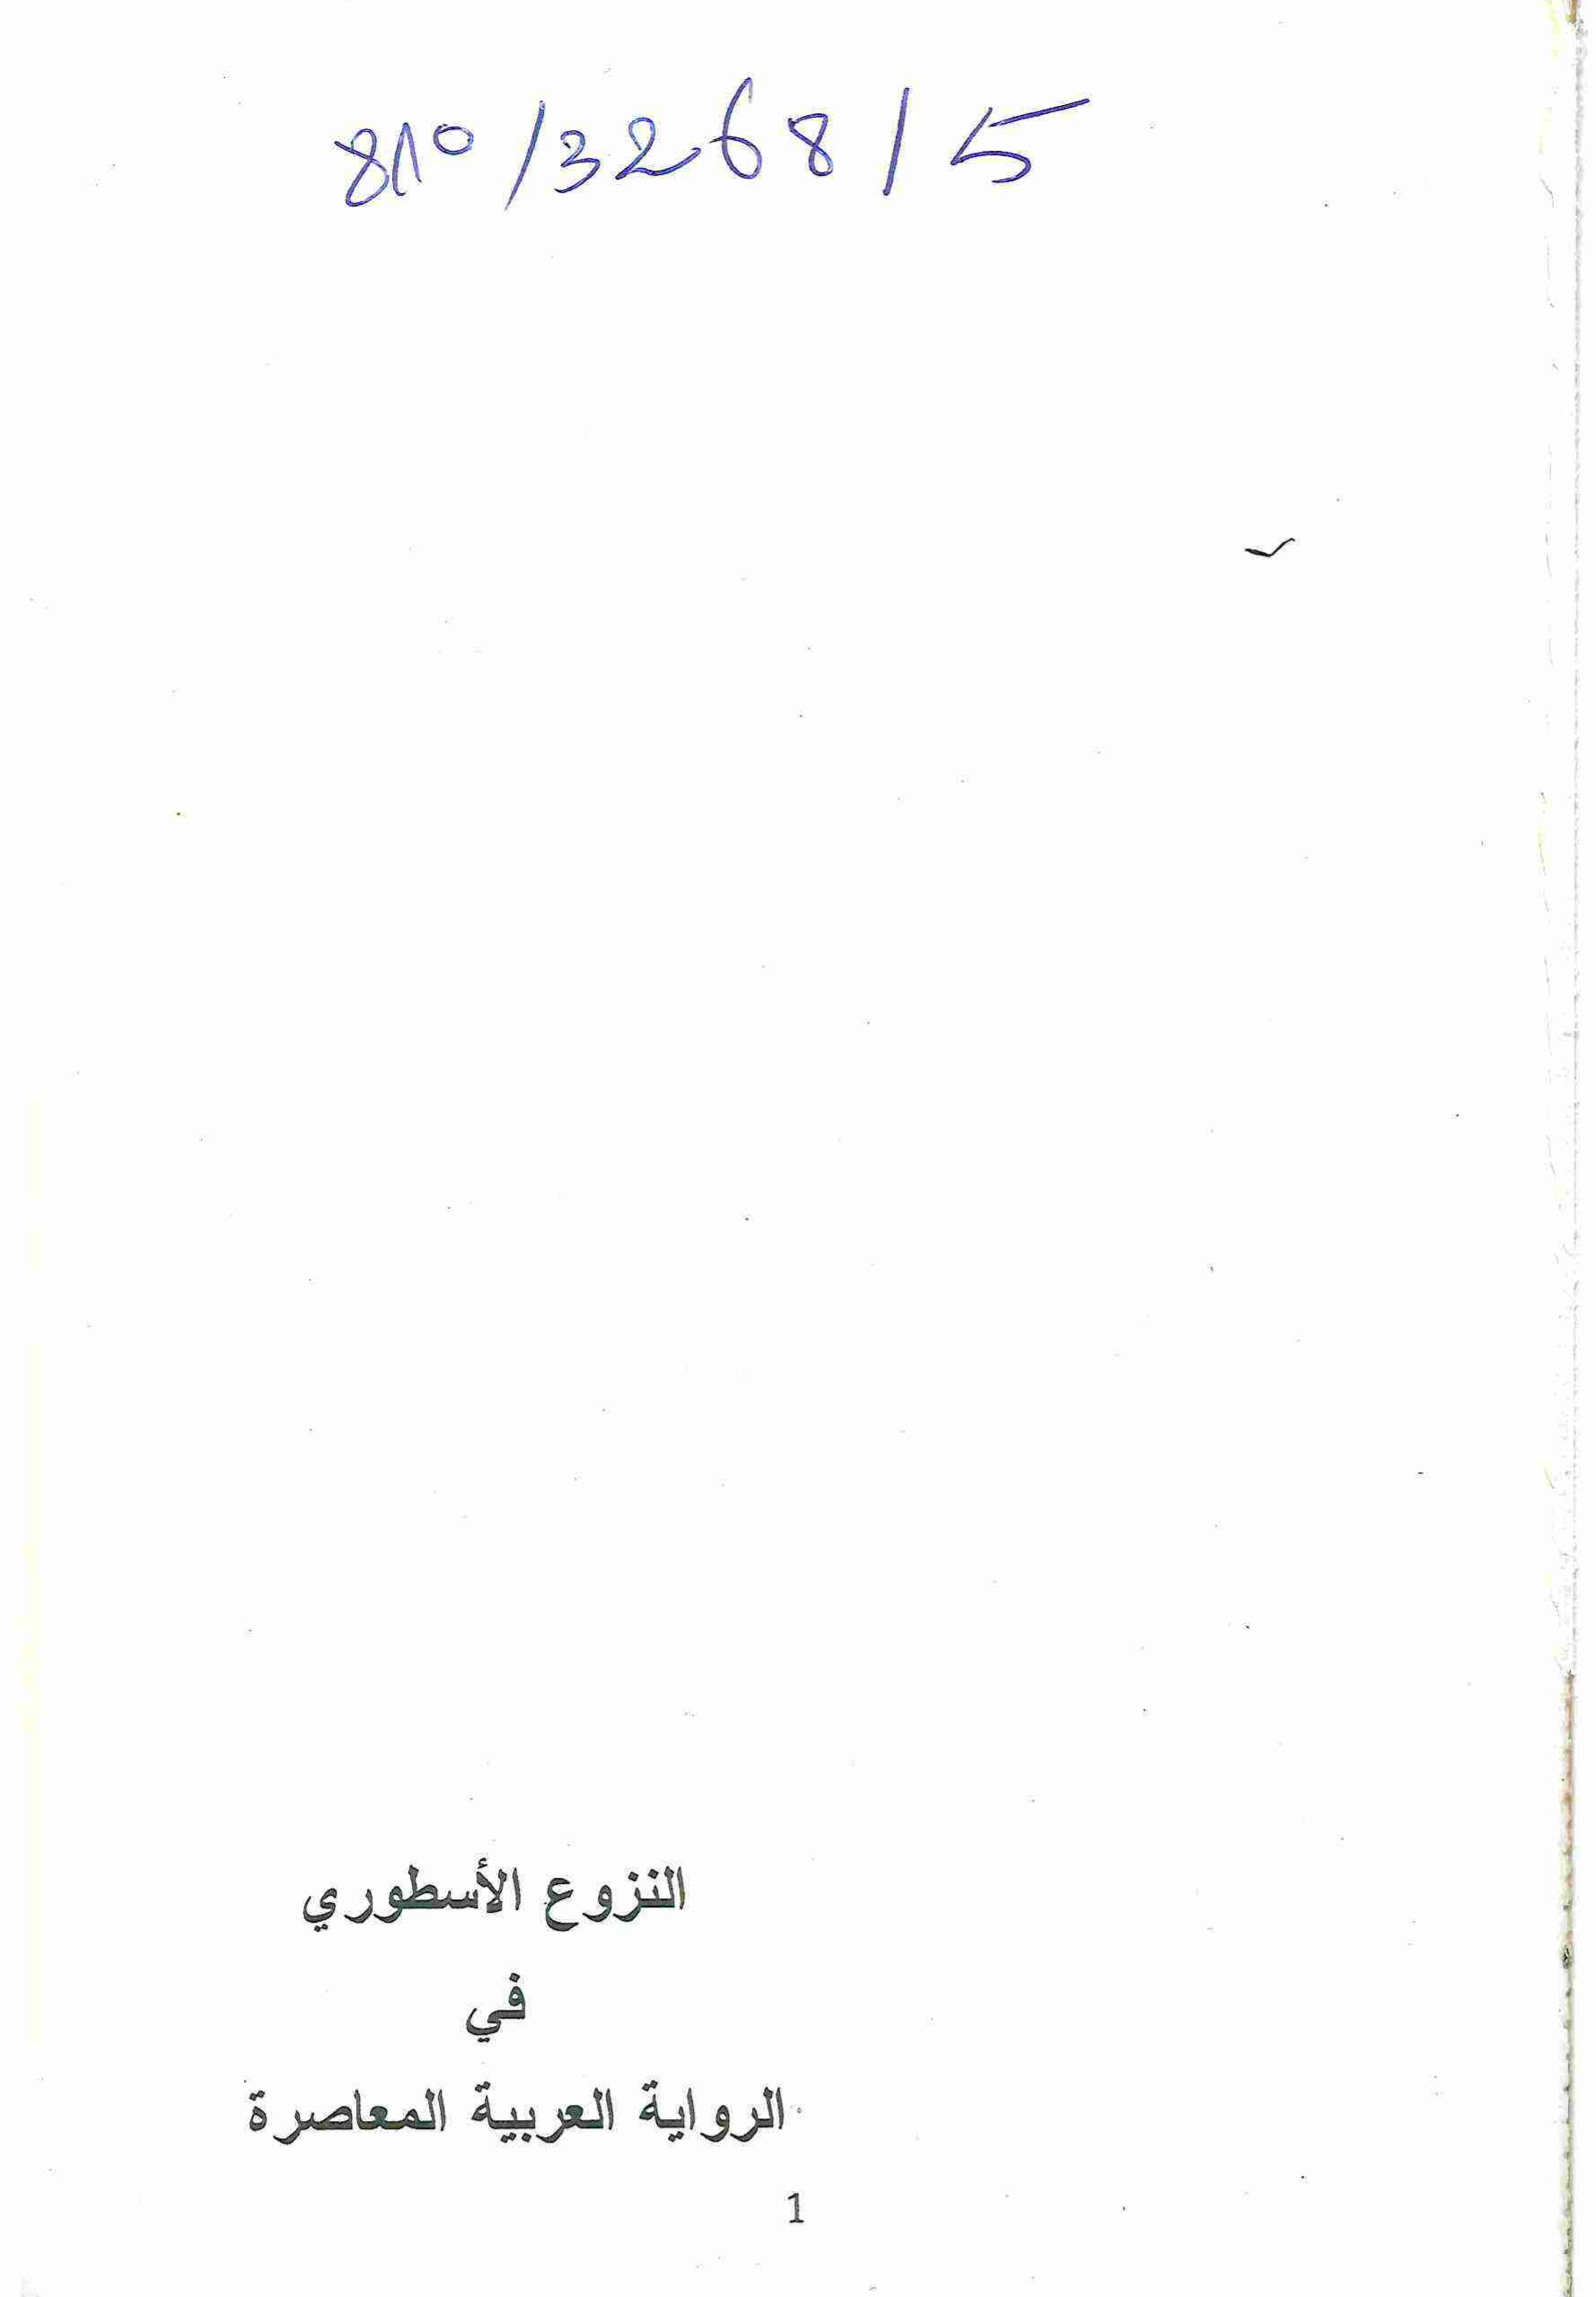 810/3268/5
النزوع الأسطوري
في
الرواية العربية المعاصرة
1